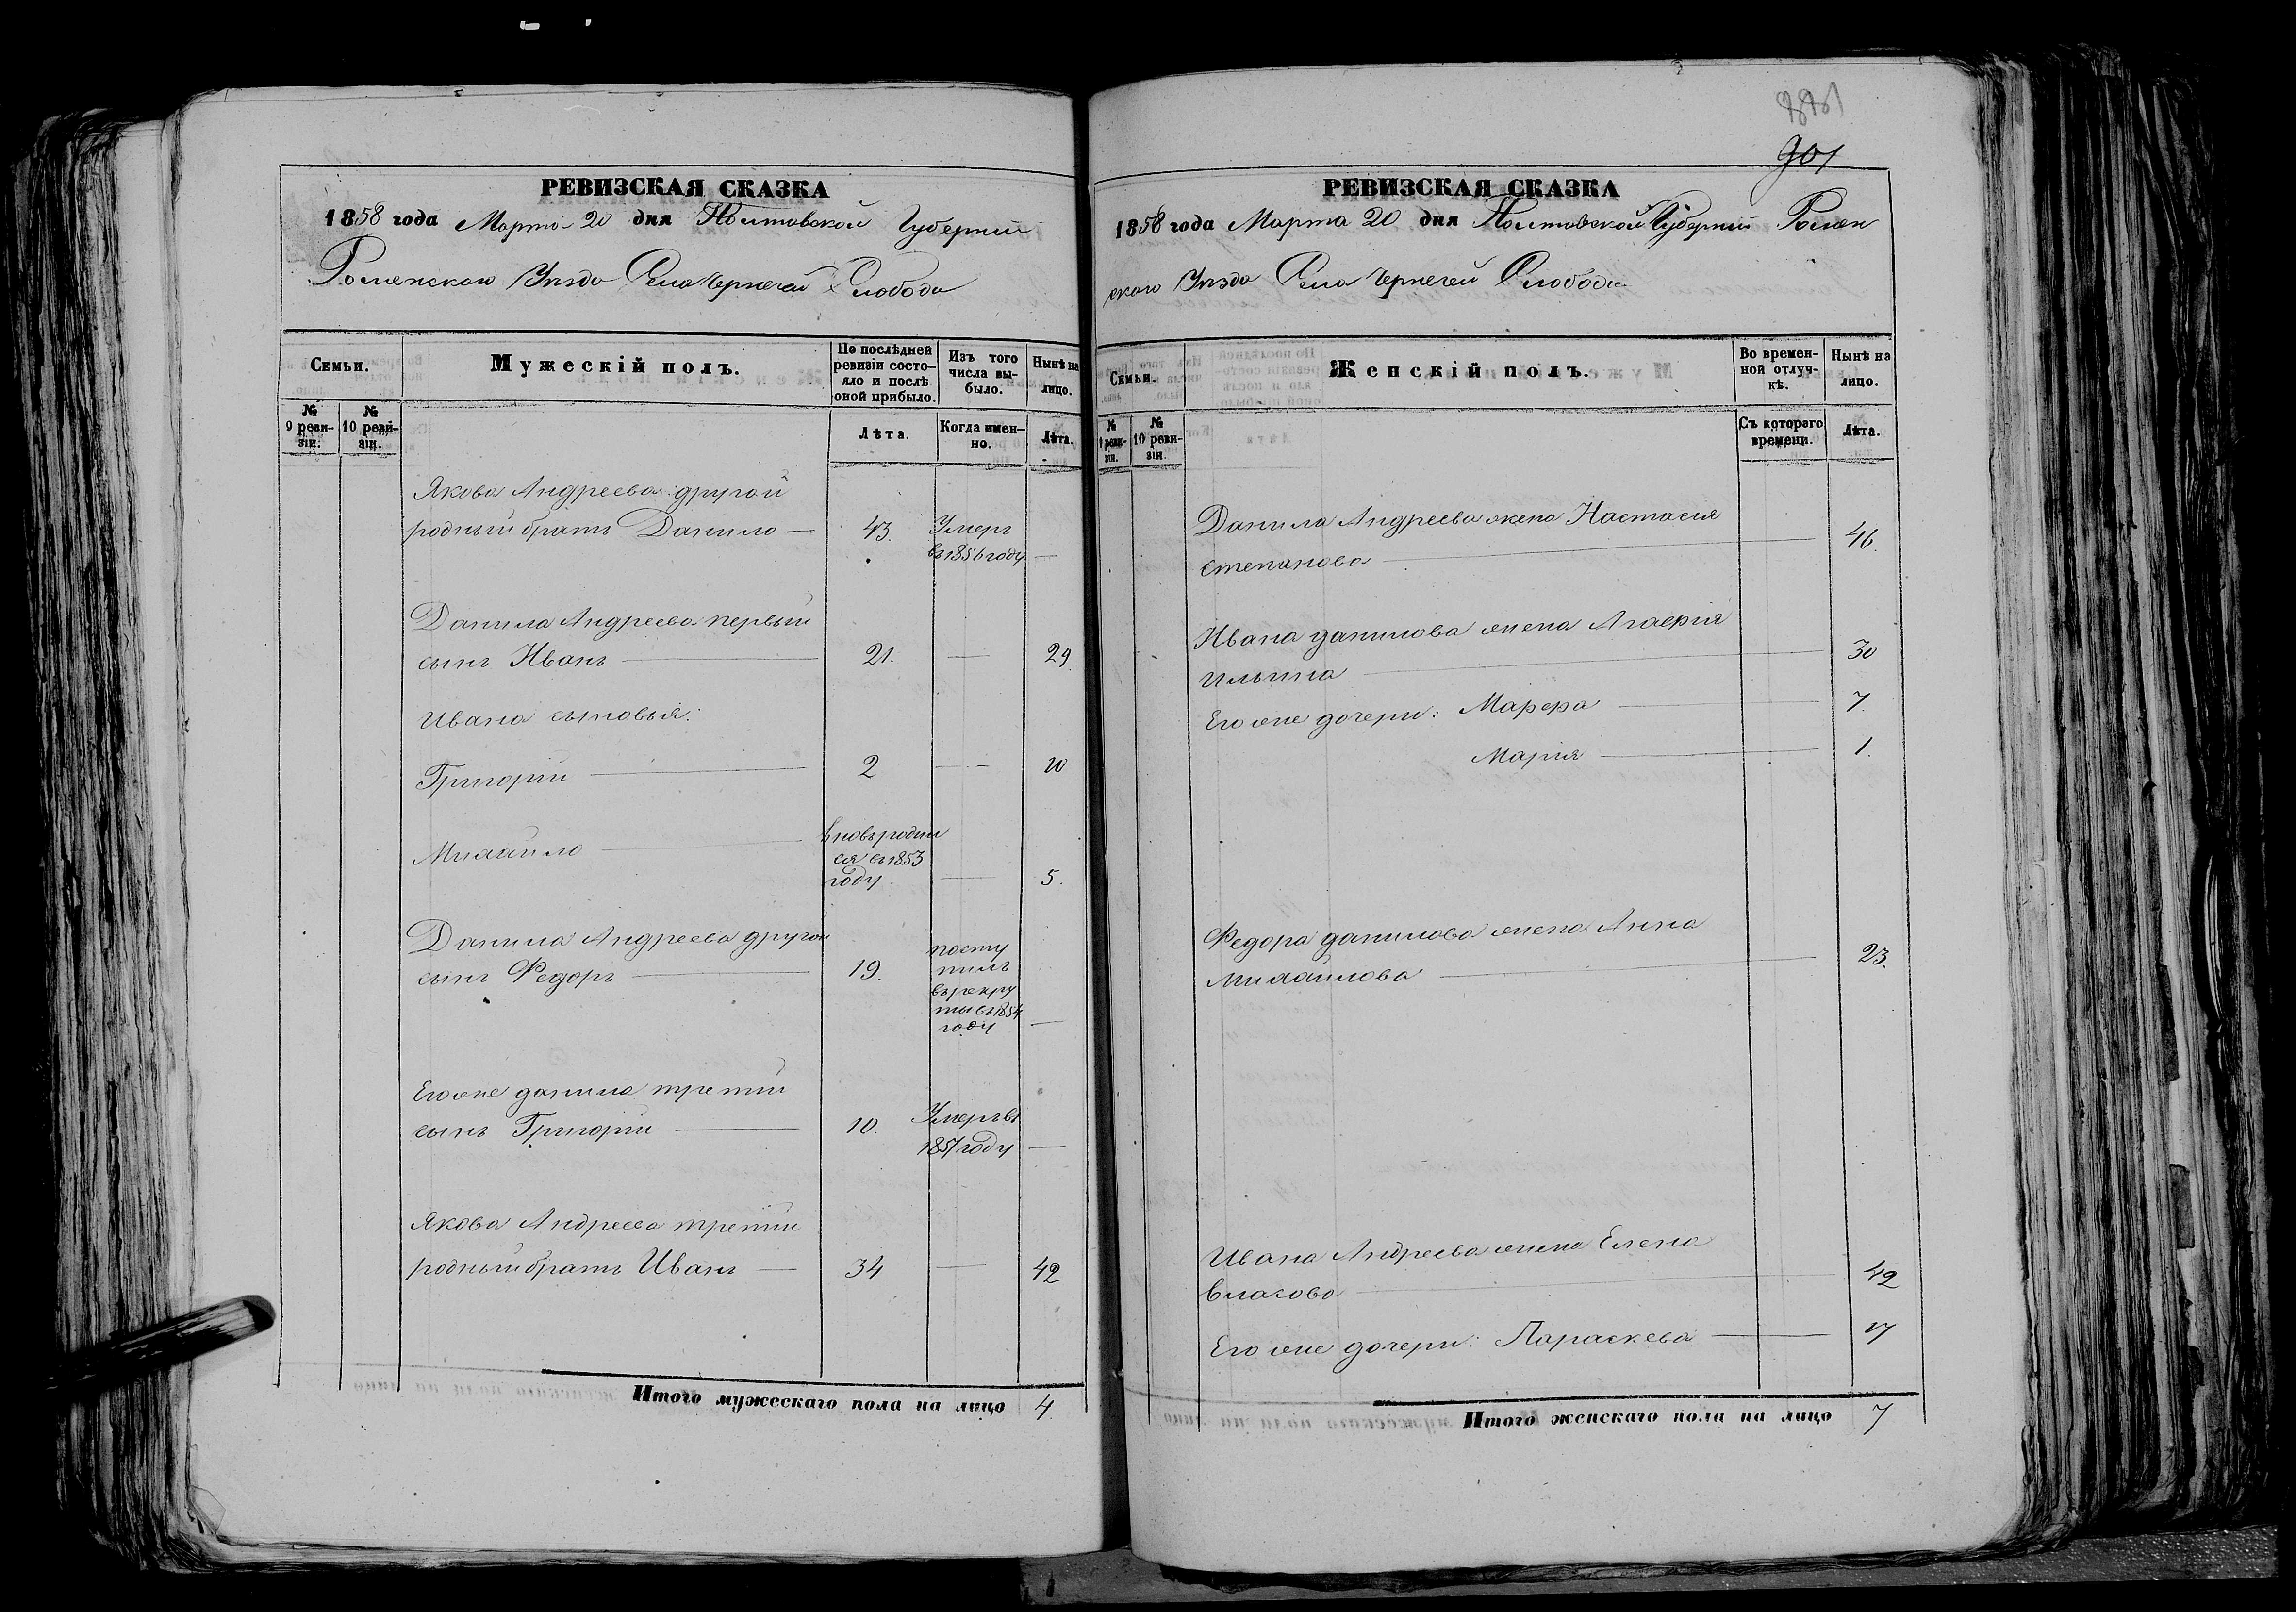 РЕВИЗСКАЯ СКАЗКА
1858 года Марта 20 дня Полтавской Губернии
Роменскаго Уезда Села Чернечей Слободы
Семьи.
Мужескій полъ.
По послѣдней ревизіи состояло и послѣ оной прибыло.
Изъ того числа выбыло.
Нынѣ на лицо.
№ 9 ревизіи.
№ 10 ревизіи.
Лѣта.
Когда именно.
Лѣта.
Якова Андреева другой
родный братъ Данило — 43. Умеръ
въ 1856 году —
Данила Андреева первый
сынъ Иванъ — 21. — 29
Ивана сыновья:
Григорій — 2 — 10
Михайло — вновь родил
ся въ 1853
году — 5.
Данила Андреева другой
сынъ Федоръ — 19. посту
пилъ
въ рекру
ты въ 1854
году —
Его же Данила третій
сынъ Григорій — 10. Умеръ въ
1851 году —
Якова Андреева третій
родный братъ Иванъ — 34 — 42
Итого мужескаго пола на лицо 4.
901
РЕВИЗСКАЯ СКАЗКА
1858 года Марта 20 дня Полтавской Губернии Ромен
скаго Уезда Села Чернечей Слободы
Семьи.
Женскій полъ.
Во временной отлучкѣ.
Нынѣ на лицо.
№ 9 ревизіи.
№ 10 ревизіи.
Съ котораго времени.
Лѣта.
Данила Андреева жена Настасия
Степанова — 46.
Ивана Данилова жена Агафія
Ильина — 30
Его же дочери: Марфа — 7.
Марія — 1.
Федора Данилова жена Анна
Михайлова — 23.
Ивана Андреева жена Елена
Власова — 42
Его же дочери: Параскева — 17
Итого женскаго пола на лицо 7